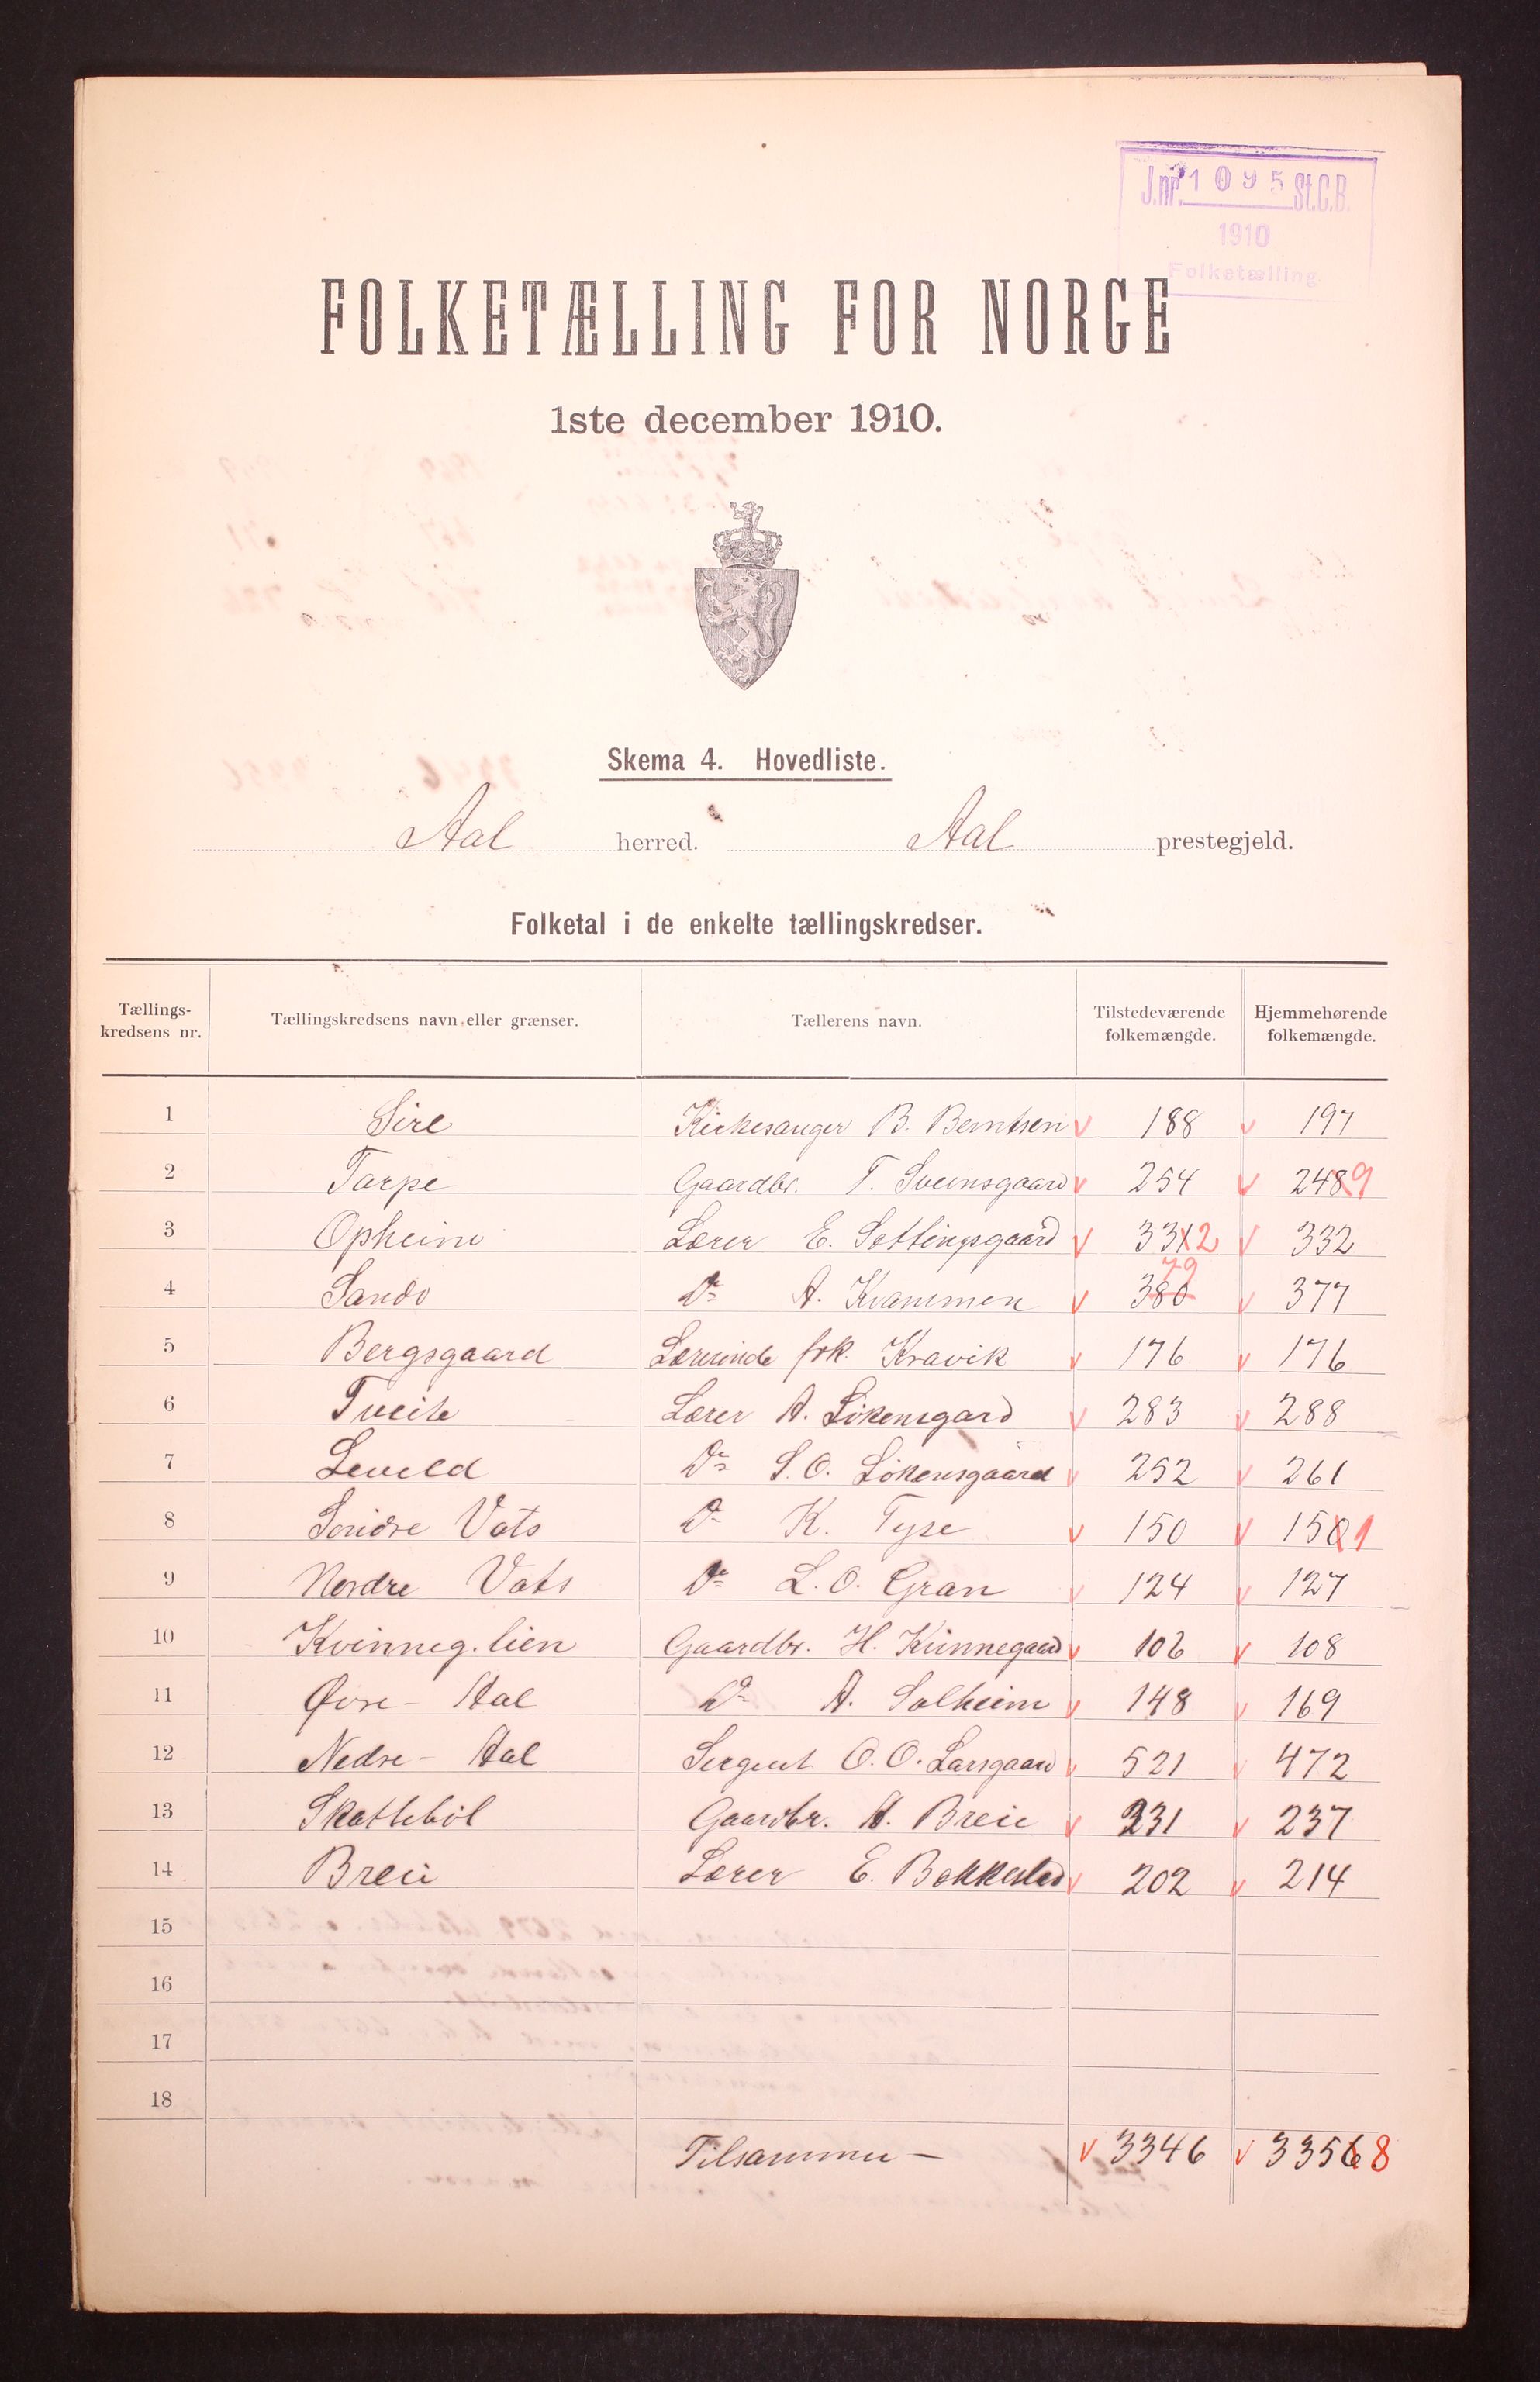 J.nr. 1095 St.C.B.
1910
Folketælling.
FOLKETÆLLING FOR NORGE
1ste december 1910.
Skema 4. Hovedliste.
Aal herred. Aal prestegjeld.
Folketal i de enkelte tællingskredser.
Tællings-kredsens nr. Tællingskredsens navn eller grænser. Tællerens navn. Tilstedeværende folkemængde. Hjemmehørende folkemængde.
1 Sire Kirkesanger B. Berntsen v 188 v 197
2 Torpe Gaardbr. T. Sveinsgaard v 254 v 2489
3 Opheim Lærer E. Sættingsgaard v 3312 v 332
79
4 Sando Do A. Kvammen v 380 v 377
5 Bergsgaard Lærerinde frk. Kravik v 176 v 176
6 Tveite Lærer A. Løkensgard v 283 v 288
7 Leveld Do S. O. Løkensgaard v 252 v 261
8 Søndre Vats Do K. Tyse v 150 v 1501
9 Nordre Vats Do L. O. Gran v 124 v 127
10 Kvinneg. lien Gaardbr. H. Kvinnegaard v 106 v 108
11 Øvre - Aal Do A. Solheim v 148 v 169
12 Nedre - Aal Sergent O. O. Larsgaard v 521 v 472
13 Skattebøl Gaardbr. A. Breie v 231 v 237
14 Breie Lærer E. Bakkestad v 202 v 214
15
16
17
18
Tilsammen - v 3346 v 33568